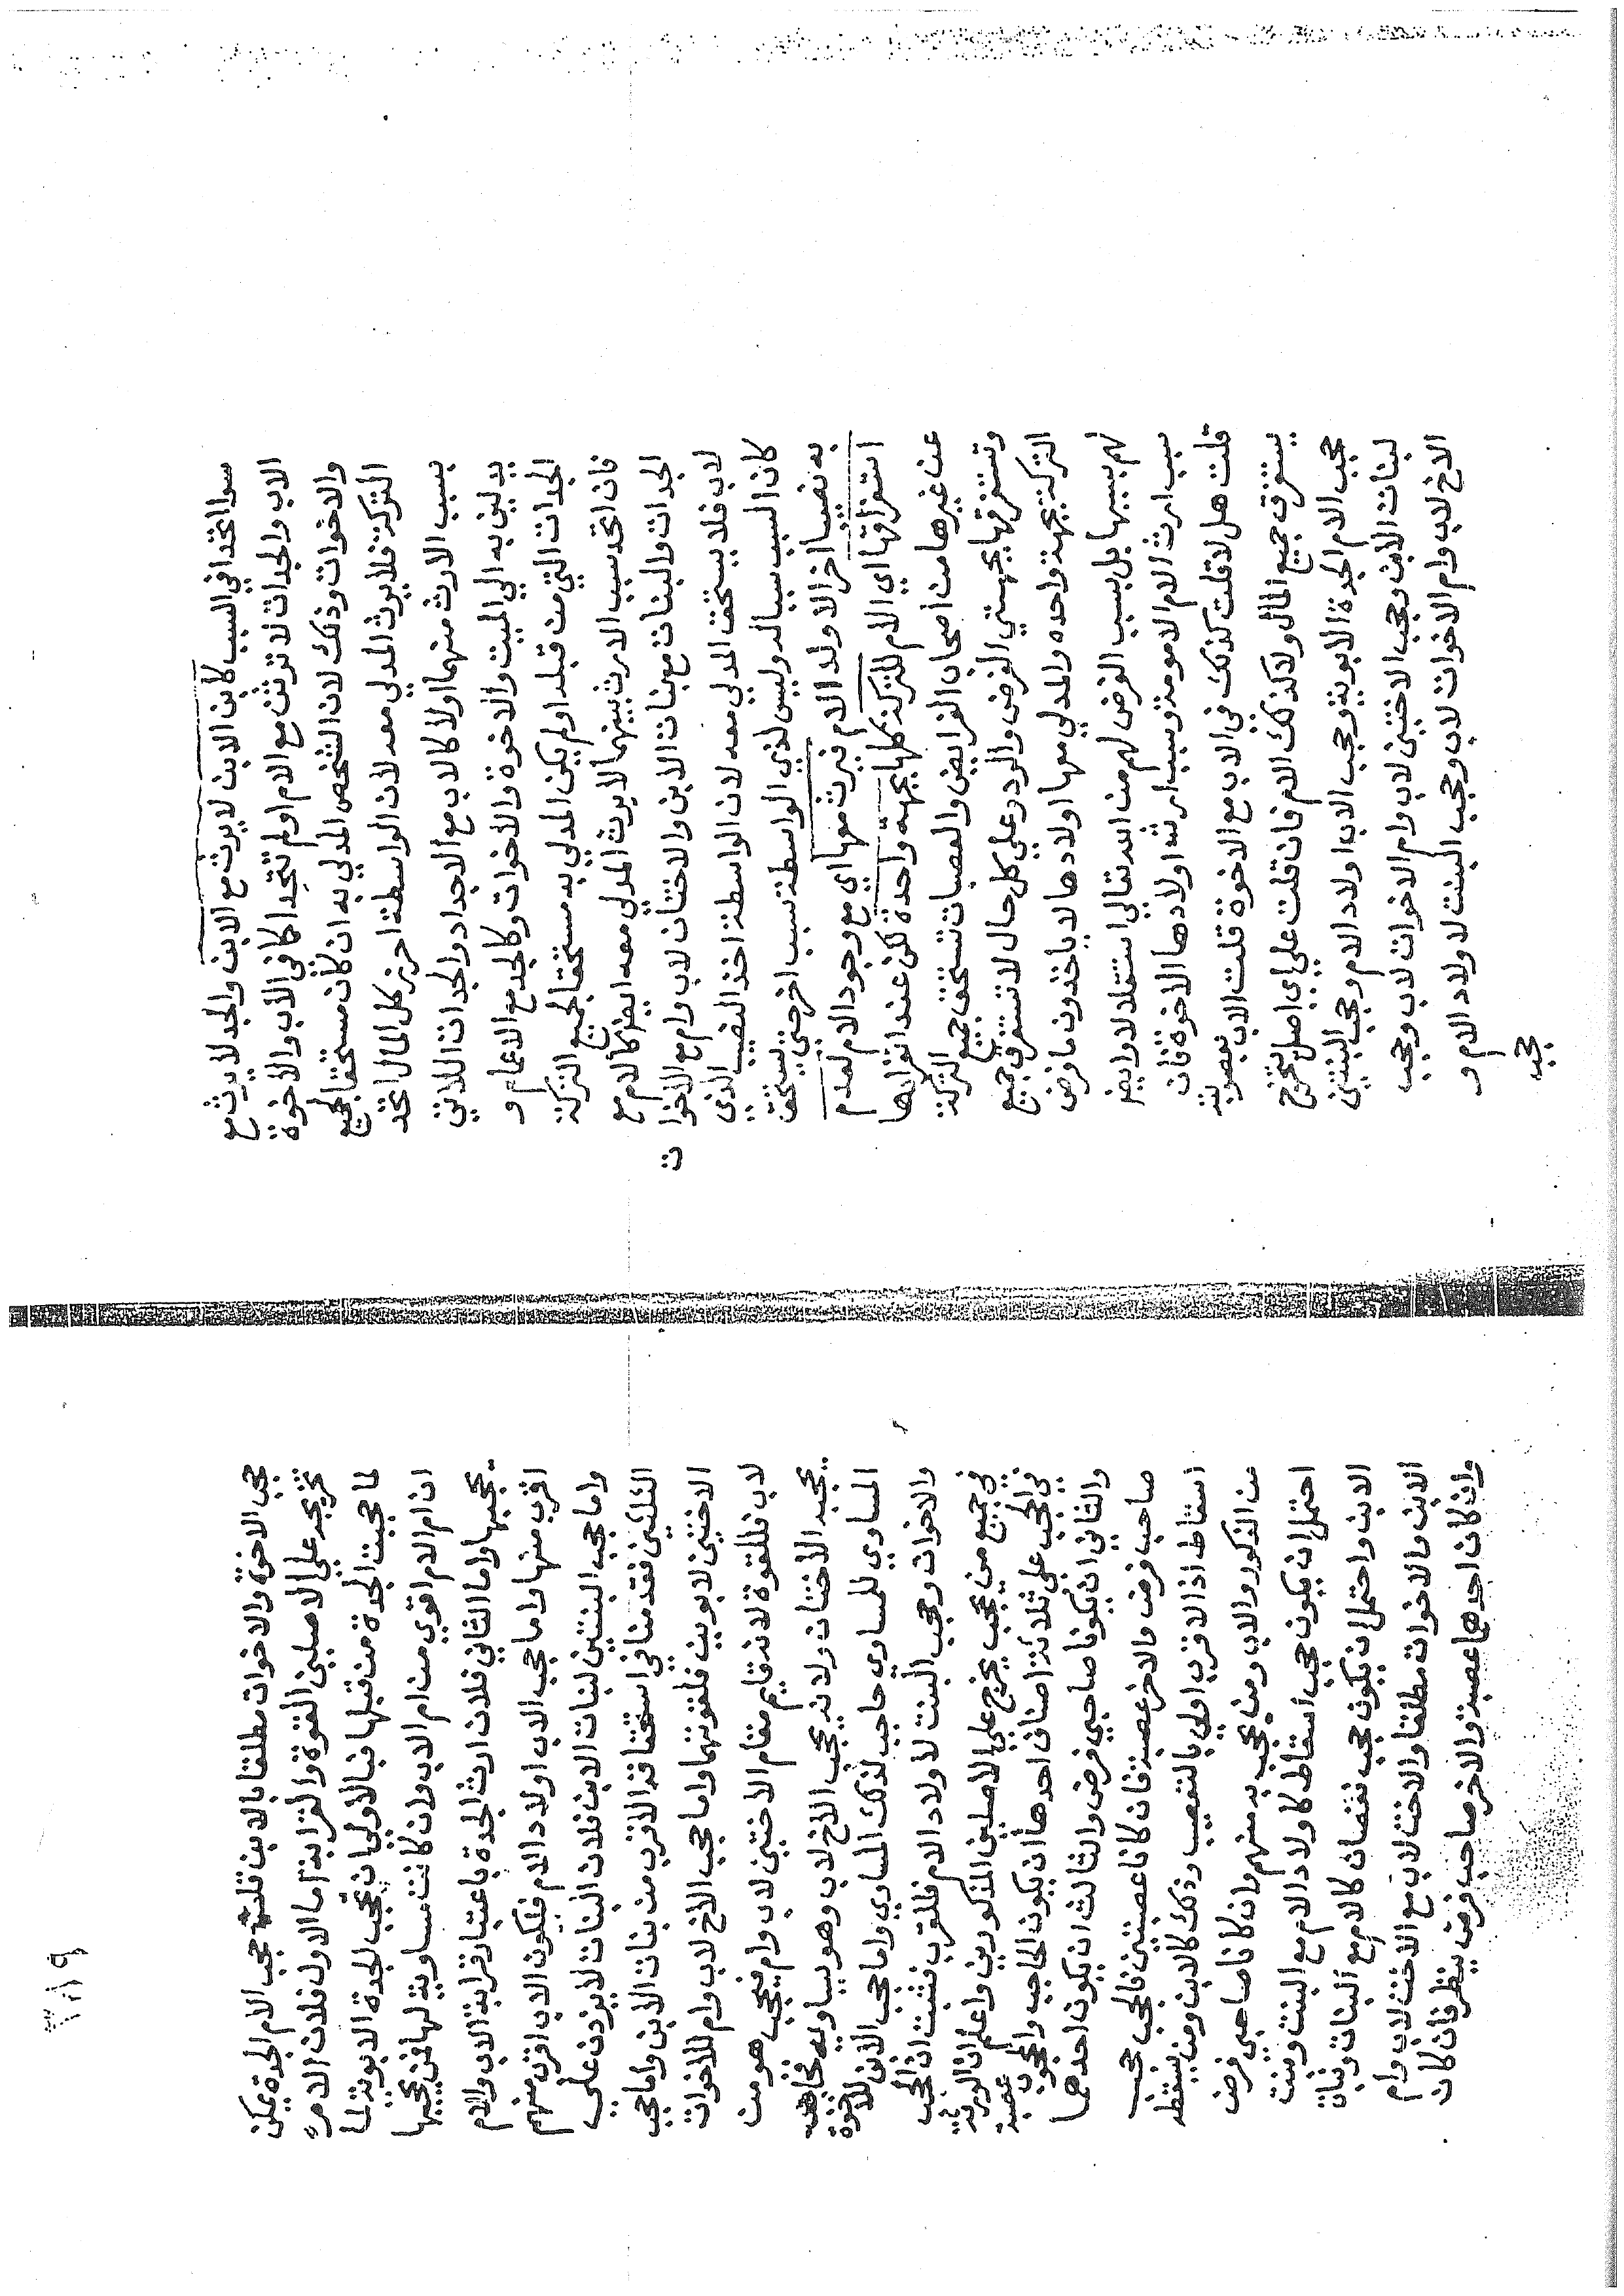 سوا اتحدا في السبب كابن الابن لا يرث مع الابن والجد لا يرث مع
الاب والجدات لا ترث مع الام اولم تتحدا كما في الاب والاخوة
والاخوات وذلك لان الشخص المدلي به ان كان مستحقا لجميع
التركة فلا يرث المدلي معه لان الواسطة احرز كل المال اتحد
بسبب الارث منهما اولا كالاب مع الاجداد والجدات اللاتي
يدلين به الي الميت والاخوة والاخوات وكالجد مع الاعمام و
الجدات التي من قبله اولم يكن المدلي به مستحقا لجميع التركة
فان اتحد سبب الارث بينهما لا يرث المدلي معه ايضا كالام مع
الجدات والبنات مع بنات الابن والاختان لاب وام مع الاخوات
لاب فلا يستحق المدلي معه لان الواسطة اخذ النصيب الذي
كان السبب سببا له وليس لذي الواسطة سبب اخر حتي يستحق
به نصيبا اخر الا ولد الام فيرث معها اي مع وجود الام لعدم
استغراقها اي الام للتركة كلها بجهة واحدة لكن عند انفرادها
عن غيرها من اصحاب الفرايض والعصبات تستحق جميع التركة
وتستغرقها بجهتي الفرض والرد وعلي كل حال لا تستغرق جميع
التركة بجهة واحده والمدلي معها اولادها لا ياخذون ما فرض
لهم بسببها بل بسبب الفرض لهم من الله تعالي استقلالا وايضا
سبب ارث الام الامومة وسبب ارث اولادها الاخوة فان
قلت هل لا قلت كذلك في الاب مع الاخوة قلت الاب بعصوبته
يستغرق جميع المال ولا كذلك الام فان قلت علي اي اصل يتخرج
حجب الام الجدة الابوية وحجب الاب اولاد الام وحجب البنتين
لبنات الابن وحجب الاختين لاب وام الاخوات لاب وحجب
الاخ لاب وام الاخوات لاب وحجب البنت لاولاد الام و
حجب
٣٨٩
حجب الاخوة والاخوات مطلقا بالابن قلت حجب الام الجدة يمكن
تخريجه علي الاصلين القوة والقرابة اما الاول فلان الام
لما حجبت الجدة من قبلها فبالاولي ان تحجب الجدة الابوية لما
ان ام الام اقوي من ام الاب وان كانت مساوية لها فمن يحجبها
يحجبها واما الثاني فلان ارث الجدة باعتبار قرابة الاب والام
اقرب منها واما حجب الاب اولاد الام فلكون الاب اقرب منهم
واما حجب البنتين لبنات الابن فلان البنات لا يزدن علي
الثلثين فقدمنا في استحقاقه الاقرب من بنات الابن واما حجب
الاختين لابوين فلقوتهما واما حجب الاخ لاب وام للاخوات
لاب فللقوة لانه قايم مقام الاختين لاب وام فيحجب هو من
يحجبه الاختان ولانه يحجب الاخ لاب وهو يساويه فحاجب
المساوي للمساوي حاجب لذلك المساوي واما حجب الابن للاخوة
والاخوات وحجب البنت لاولاد الام فللقرب فثبت ان الحجب
في جميع من يحجب يخرج علي الاصلين المذكورين واعلم ان الورثة
في الحجب علي ثلاثة اصناف احدها ان يكون الحاجب والمحجوب عصبة
والثاني ان يكونا صاحبي فرض والثالث ان يكون احدهما
صاحب فرض والاخر عصبة فان كانا عصبتين فالحجب حجب
اسقاط اذ الاقرب اولي بالتعصيب وذلك كالابن ومن يسقطه
من الذكور والاب ومن يحجب به منهم وان كانا صاحبي فرض
احتمل ان يكون حجب اسقاط كاولاد الام مع البنت وبنت
الابن واحتمل ان يكون حجب نقصان كالام مع البنات وبنات
الابن والاخوات مطلقا والاخت لاب مع الاخت لاب وام
وان كان احدهما عصبة والاخر صاحب فرض ينظر فان كان